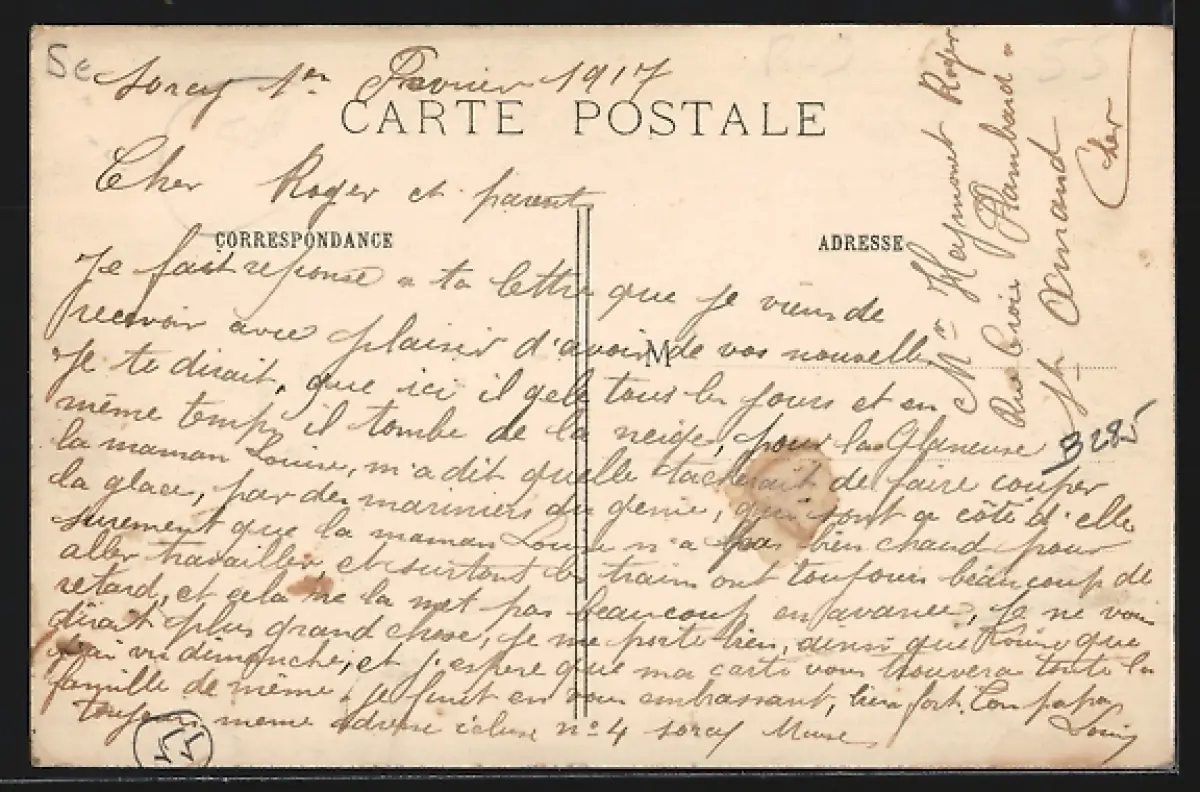 Sorcy 1er Fevrier 1917
CARTE POSTALE
Cher Roger et parents
CORRESPONDANCE
ADRESSE
Je fait reponse a ta lettre que je viens de
recevoir avec plaisir d'avoir de vos nouvelles
M
Je te dirait, que ici il gele tous les jours et en
même temps il tombe de la neige, pour la Glaneuse
la maman Louise, m'a dit quelle tacherait de faire couper
la glace, par des mariniers du genie, qui sont a côté d'elle
surement que la maman Louise n'a pas bien chaud pour
aller travailler, et surtout les trains ont toujours beaucoup de
retard, et cela ne la met pas beaucoup en avance, Je ne vous
dirait plus grand chose, je me porte bien, ainsi que Louise que
j'ai vu dimanche, et j'espere que ma carte vous trouvera toute la
famille de même, je finit en vous embrassant, bien fort. Ton papa
Toujours meme adresse ecluse no 4 Sorcy Meuse
Louis
Mr Roger
Rue Croix
St Amand
Cher
3285
55